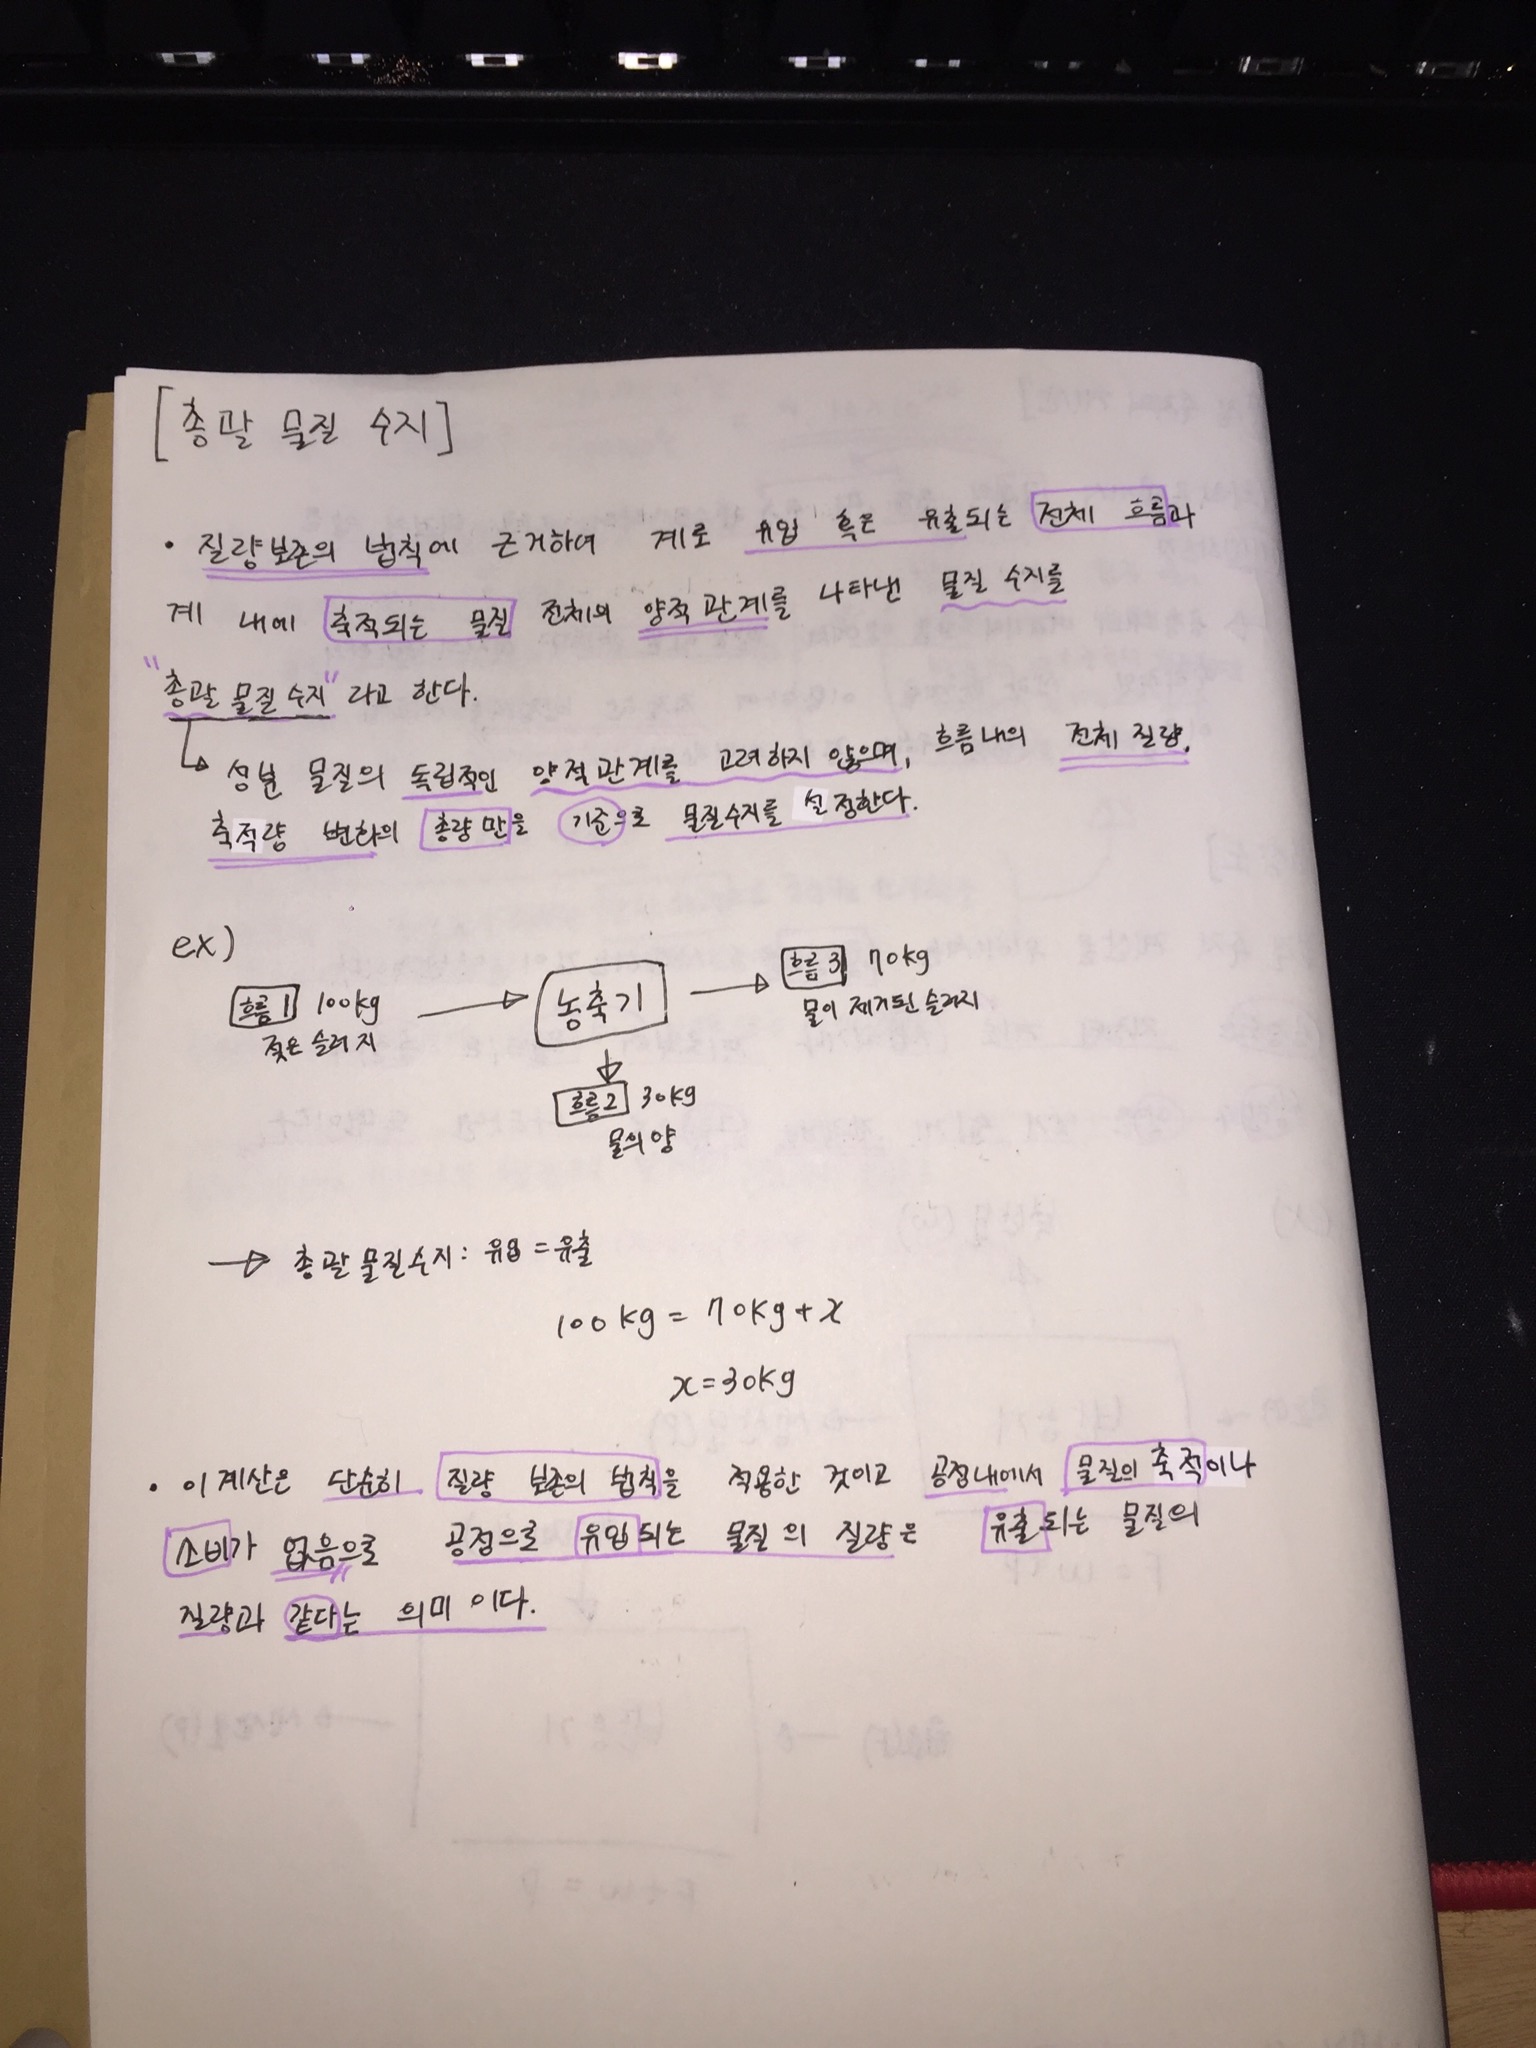 [총괄 물질 수지]
• 질량보존의 법칙에 근거하여 계로 유입 혹은 유출되는 전체 흐름과
계 내에 축적되는 물질 전체의 양적관계를 나타낸 물질 수지를
"총괄 물질 수지" 라고 한다.
↳ 성분 물질의 독립적인 양적관계를 고려하지 않으며, 흐름내의 전체 질량,
축적량 변화의 총량만을 기준으로 물질수지를 설정한다.
ex)
흐름1 100kg → 농축기 → 흐름3 70kg
젖은 슬러지
물이 제거된 슬러지
↓
흐름2 30kg
물의 양
→ 총괄 물질수지: 유입 = 유출
100kg = 70kg + x
x = 30kg
• 이 계산은 단순히 질량 보존의 법칙을 적용한 것이고 공정내에서 물질의 축적이나
소비가 없음으로 공정으로 유입되는 물질의 질량은 유출되는 물질의
질량과 같다는 의미이다.